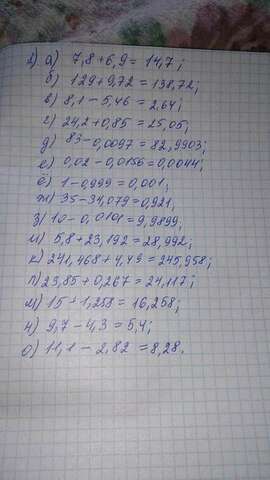 2) а) 7,8+6,9=14,7;
б) 129+9,72=138,72;
в) 8,1-5,46=2,64;
г) 24,2+0,85=25,05;
д) 83-0,0097=82,9903;
е) 0,02-0,0156=0,0044;
ё) 1-0,999=0,001;
ж) 35-34,079=0,921;
з) 10-0,0101=9,9899;
и) 5,8+23,192=28,992;
к) 241,468+4,49=245,958;
л) 23,85+0,267=24,117;
м) 15+1,258=16,258;
н) 9,7-4,3=5,4;
о) 11,1-2,82=8,28.